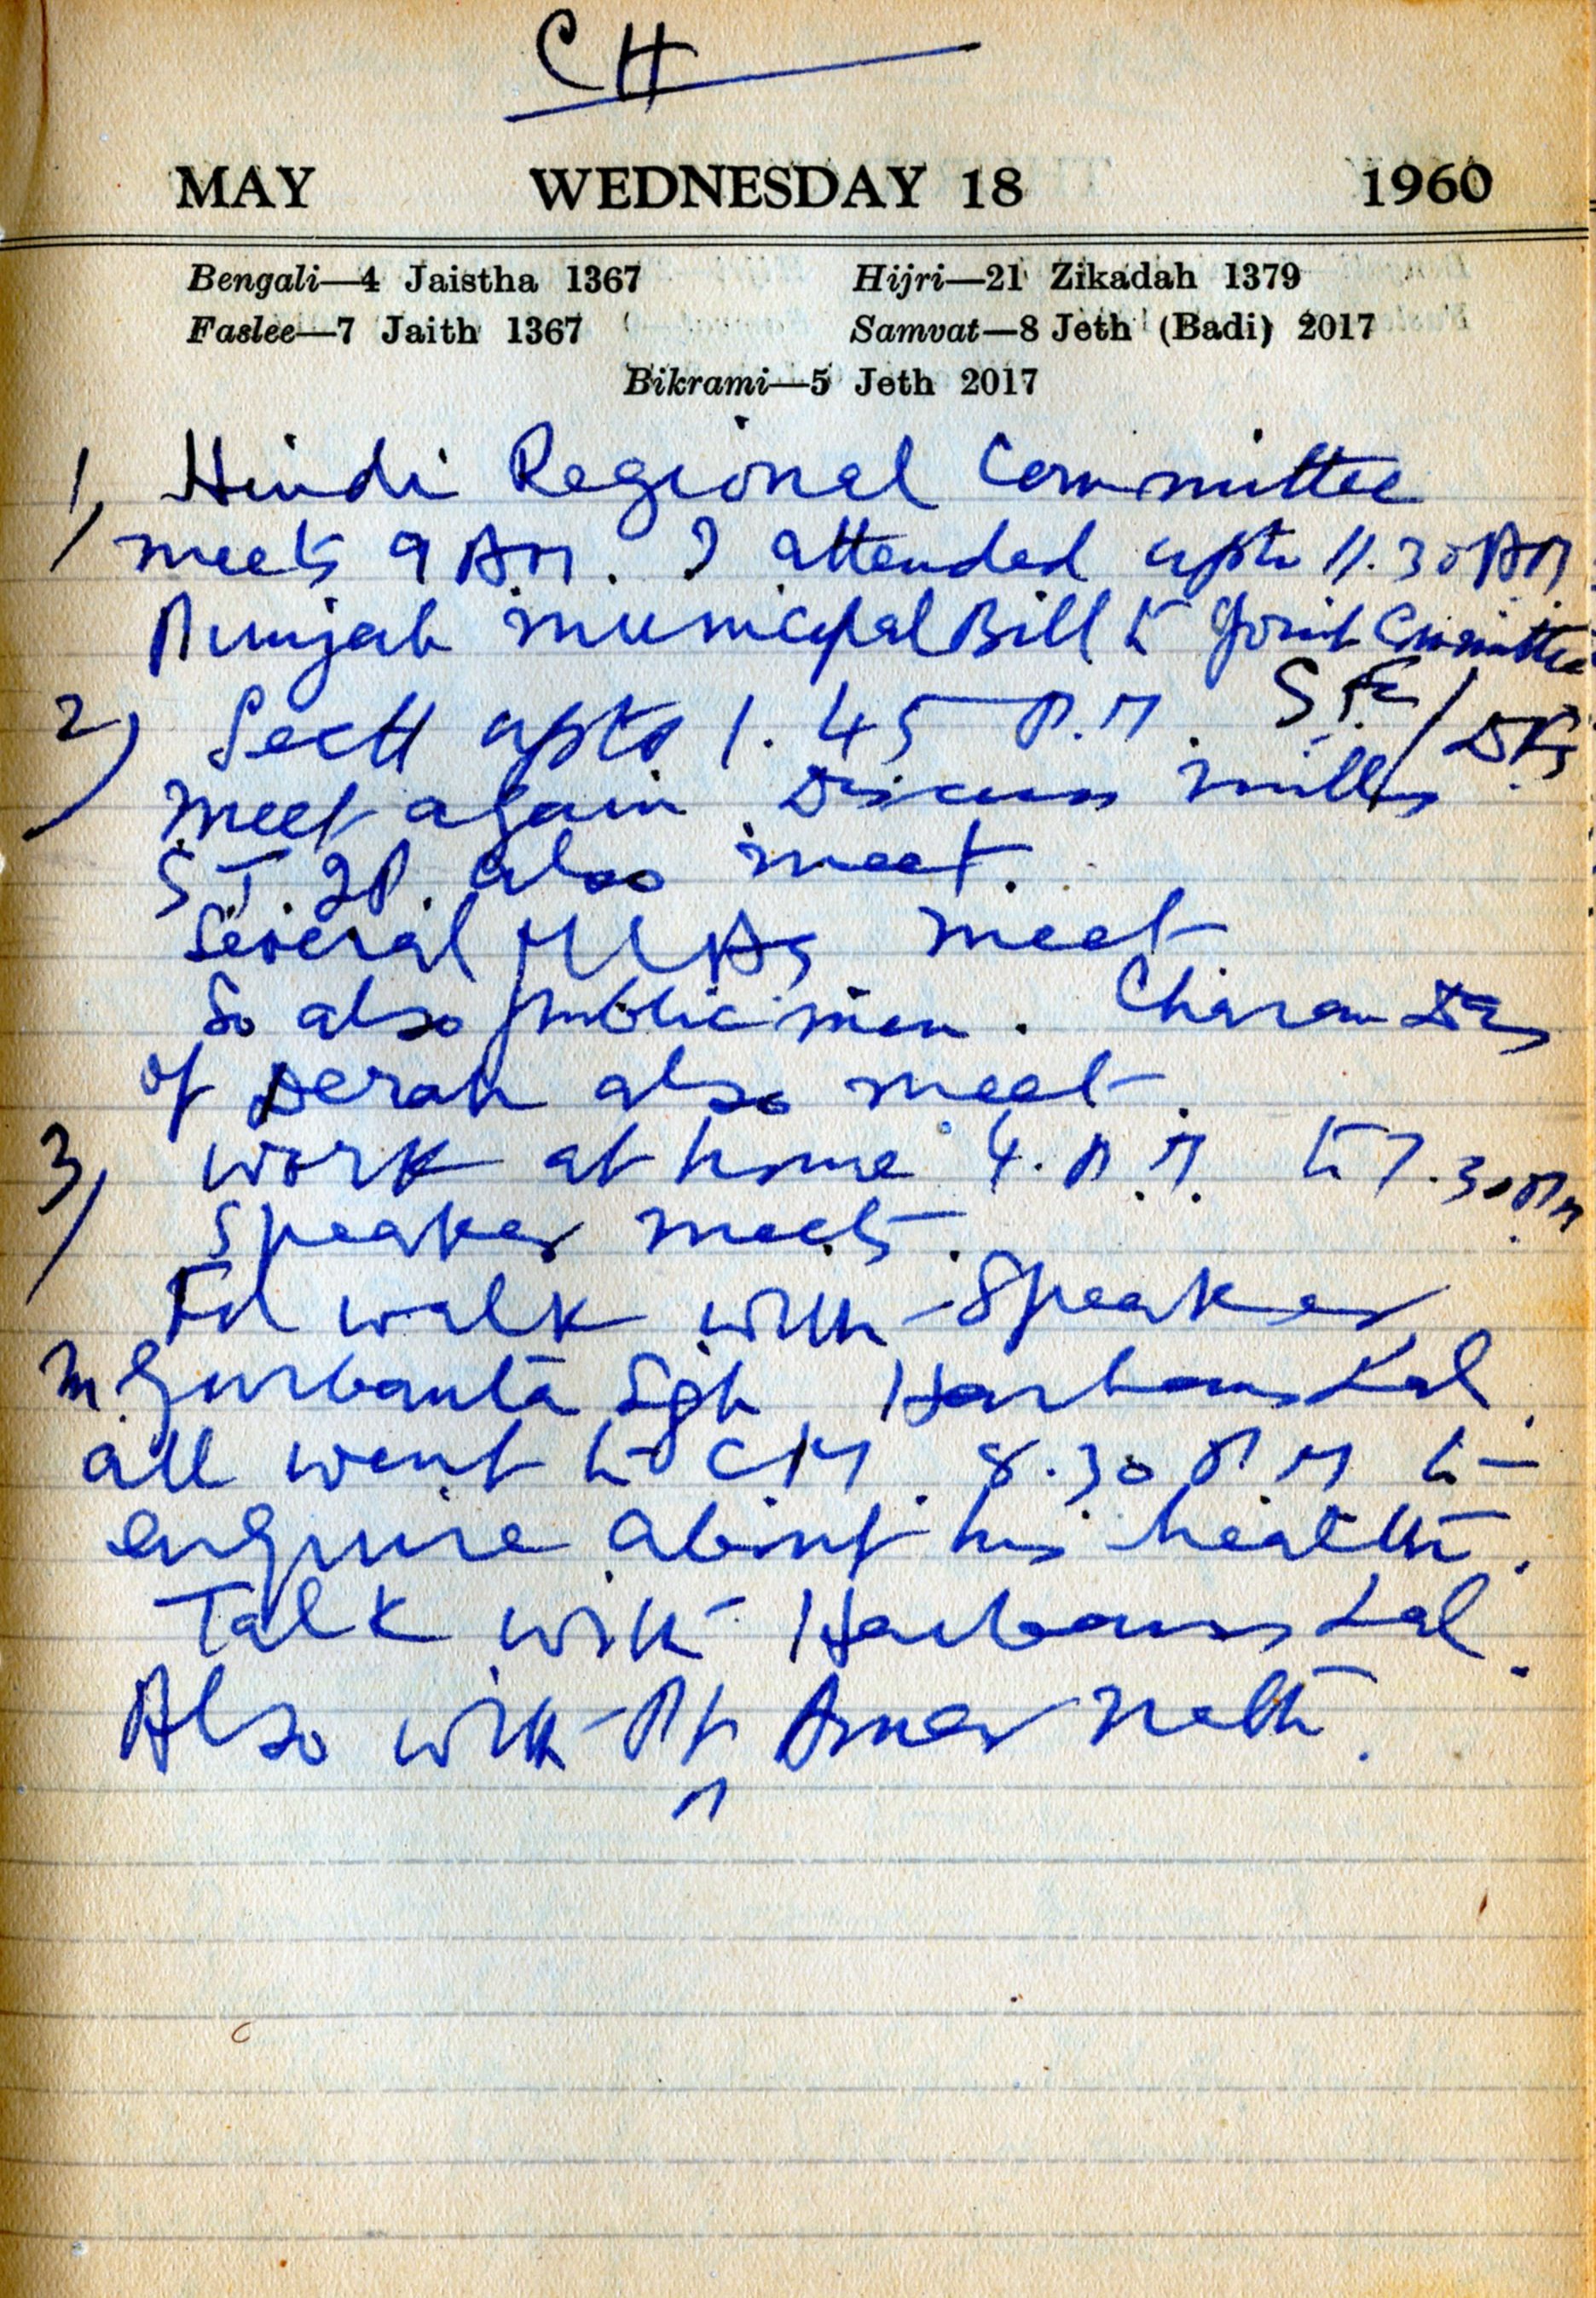 CH
MAY WEDNESDAY 18 1960
Bengali—4 Jaistha 1367 Hijri—21 Zikadah 1379
Faslee—7 Jaith 1367 Samvat—8 Jeth (Badi) 2017
Bikrami—5 Jeth 2017
1, Hindi Regional Committee
meets 9 AM. I attended upto 11.30 AM
Punjab Municipal Bill to Joint Committee
2) Sectt upto 1.45 P.M.
meet again. Discuss
also meet.
Several MLAs meet
So also public men. Charan Das
of Derah also meet.
3, Work at home 4. P.M. to 7.30 PM
Speaker meets.
walk with Speaker
Gurbanta Sgh Harbans Lal.
all went to CM 8.30 PM to
enquire about his health.
Talk with Harbans Lal.
Also with Pt Amar Nath.